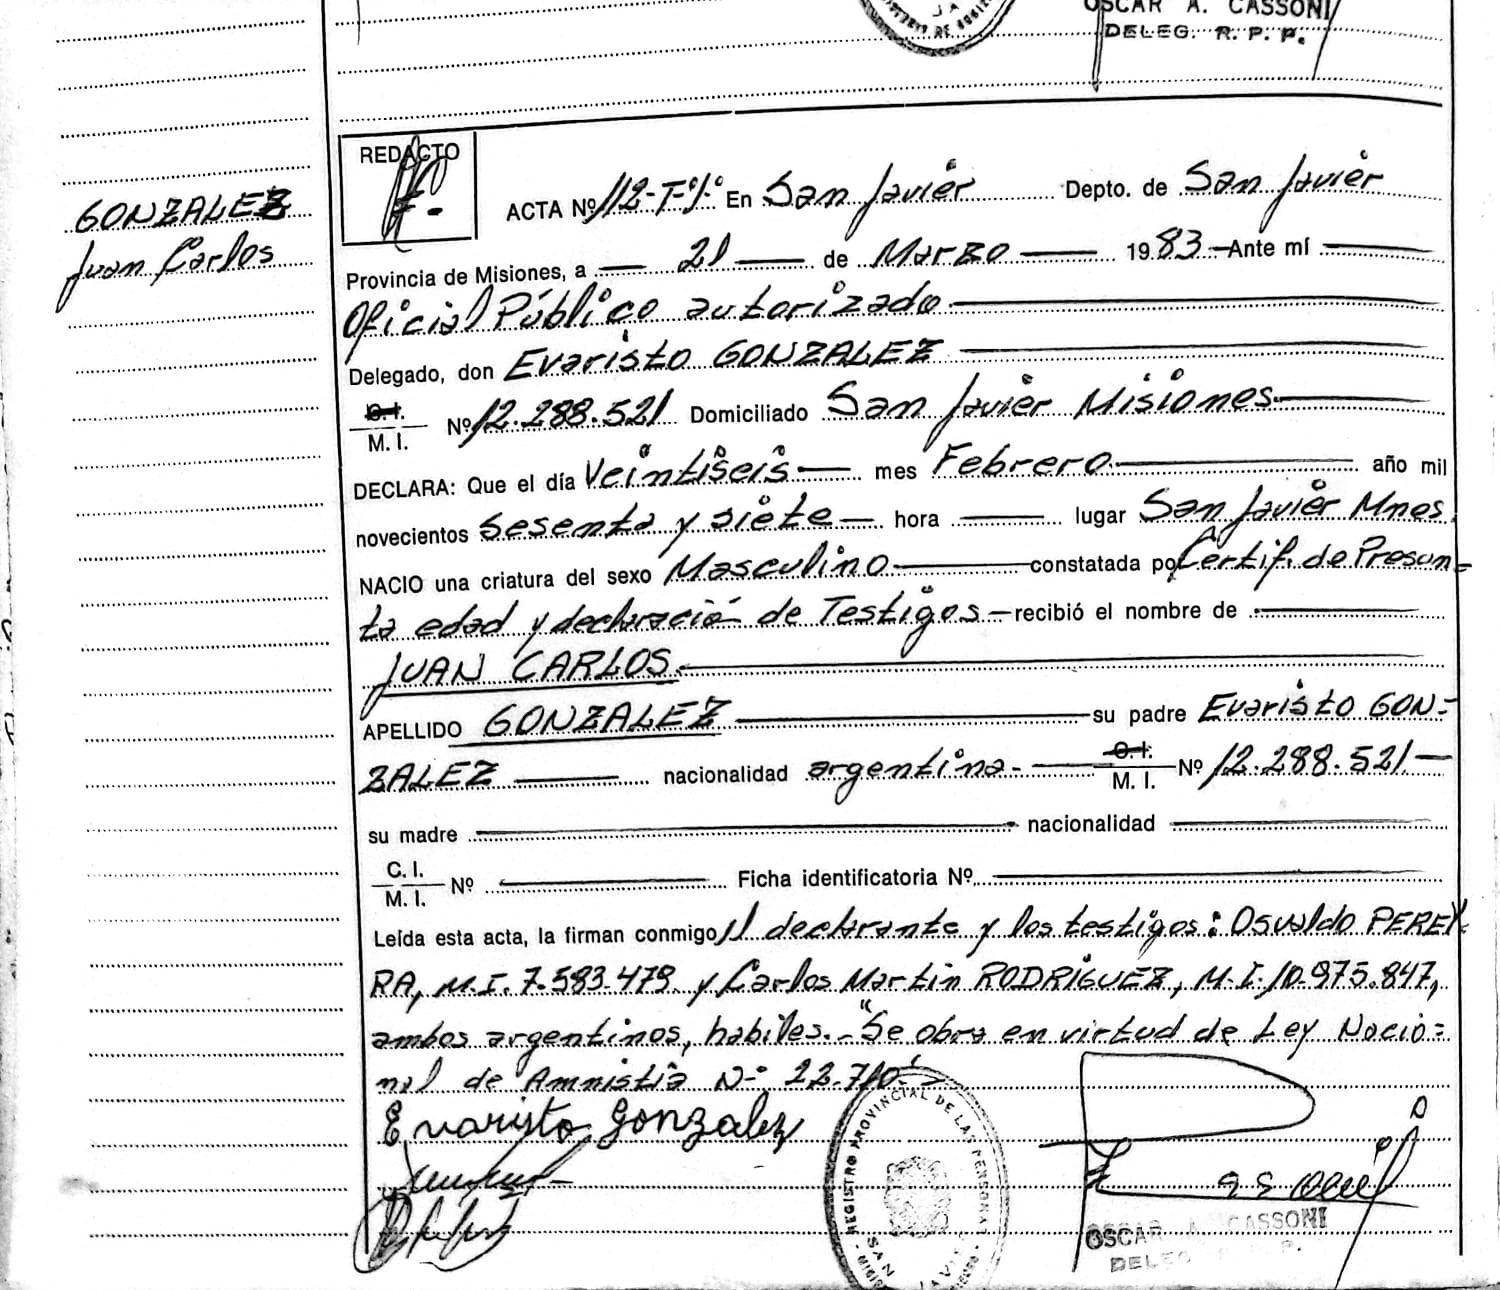 OSCAR A. CASSONI
DELEG. R. P. P.
GONZALEZ
Juan Carlos
REDACTO
ACTA Nº 112-Tº1º En San Javier Depto. de San Javier
Provincia de Misiones, a 21 de Marzo 1983 Ante mí
Oficial Público autorizado
Delegado, don Evaristo GONZALEZ
C.I.
M. I. Nº 12.288.521 Domiciliado San Javier Misiones
DECLARA: Que el día Veintiseis mes Febrero año mil
novecientos Sesenta y siete hora lugar San Javier Mnes.
NACIO una criatura del sexo Masculino constatada por Certif. de Presun=
ta edad y declaración de Testigos recibió el nombre de
JUAN CARLOS
APELLIDO GONZALEZ su padre Evaristo GON=
ZALEZ nacionalidad argentina C.I. M. I. Nº 12.288.521
su madre nacionalidad
C. I.
M. I. Nº Ficha identificatoria Nº
Leída esta acta, la firman conmigo el declarante y los testigos: Osvaldo PEREY
RA, M.I. 7.583.479 y Carlos Martin RODRÍGUEZ, M.I. 10.975.847,
ambos argentinos, habiles.- "Se obra en virtud de Ley Nacio=
nal de Amnistía Nº 22.710"
Evaristo Gonzalez
REGISTRO PROVINCIAL DE LAS PERSONAS
SAN JAVIER
OSCAR A. CASSONI
DELEG. R. P. P.